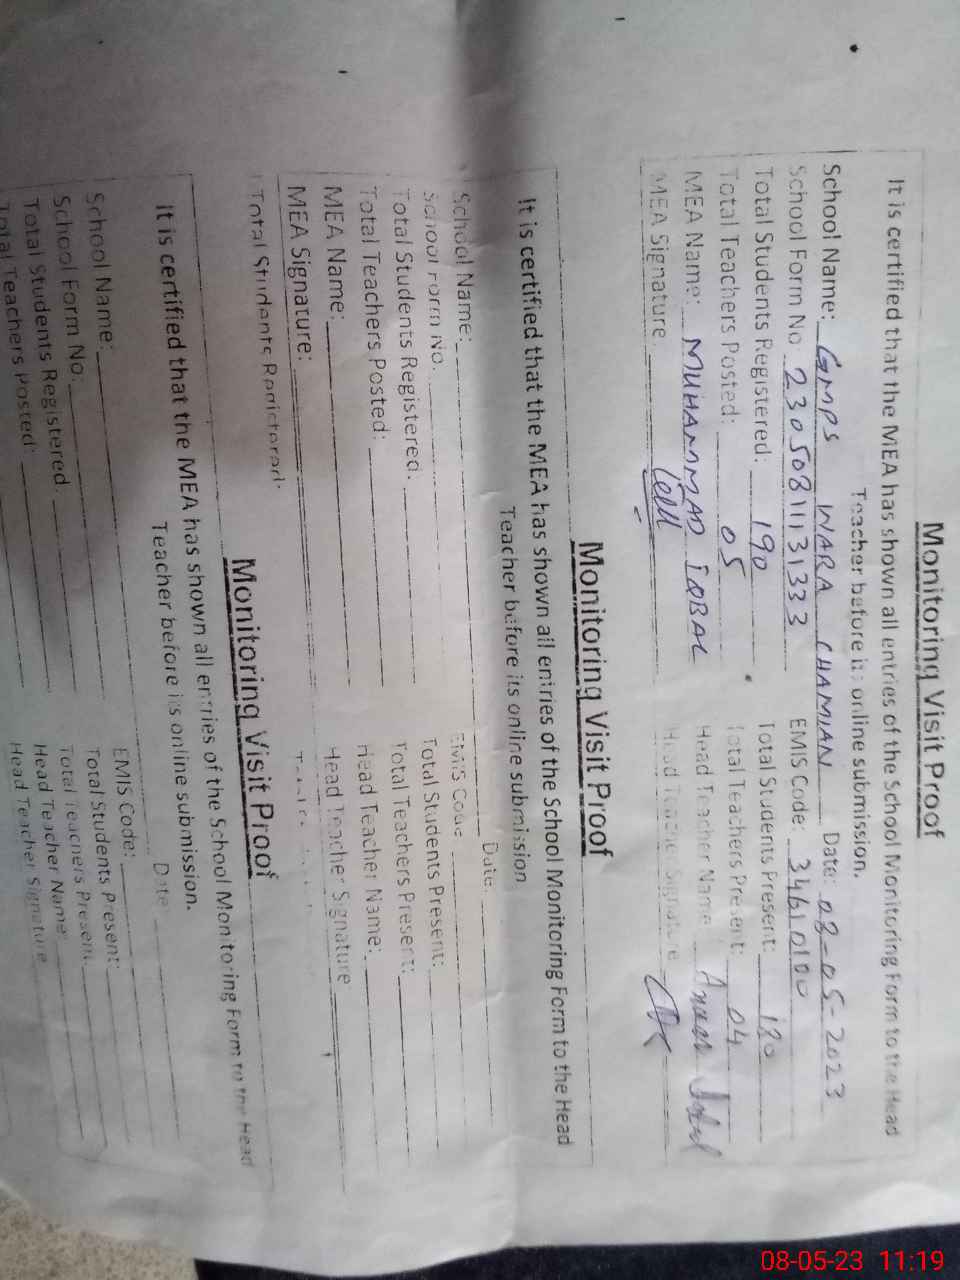 Monitoring Visit Proof
It is certified that the MEA has shown all entries of the School Monitoring Form to the Head
Teacher before its online submission.
School Name: GMPS WARA CHAMIAN Date: 08-05-2023
School Form No 23050811131333 EMIS Code: 34610100
Total Students Registered: 190 Total Students Present: 180
Total Teachers Posted: 05 Total Teachers Present: 04
MEA Name: MUHAMMAD IQBAL Head Teacher Name
MEA Signature Head Teacher Signature
Monitoring Visit Proof
It is certified that the MEA has shown all entries of the School Monitoring Form to the Head
Teacher before its online submission
School Name: Date:
School Form No. EMIS Code
Total Students Registered. Total Students Present:
Total Teachers Posted: Total Teachers Present:
MEA Name: Head Teacher Name:
MEA Signature: Head Teacher Signature
Total Students Registered:
Monitoring Visit Proof
It is certified that the MEA has shown all entries of the School Monitoring Form to the Head
Teacher before its online submission.
School Name: Date
School Form No. EMIS Code:
Total Students Registered Total Students Present:
Total Teachers Posted: Total Teachers Present.
Head Teacher Name:
Head Teacher Signature
08-05-23 11:19